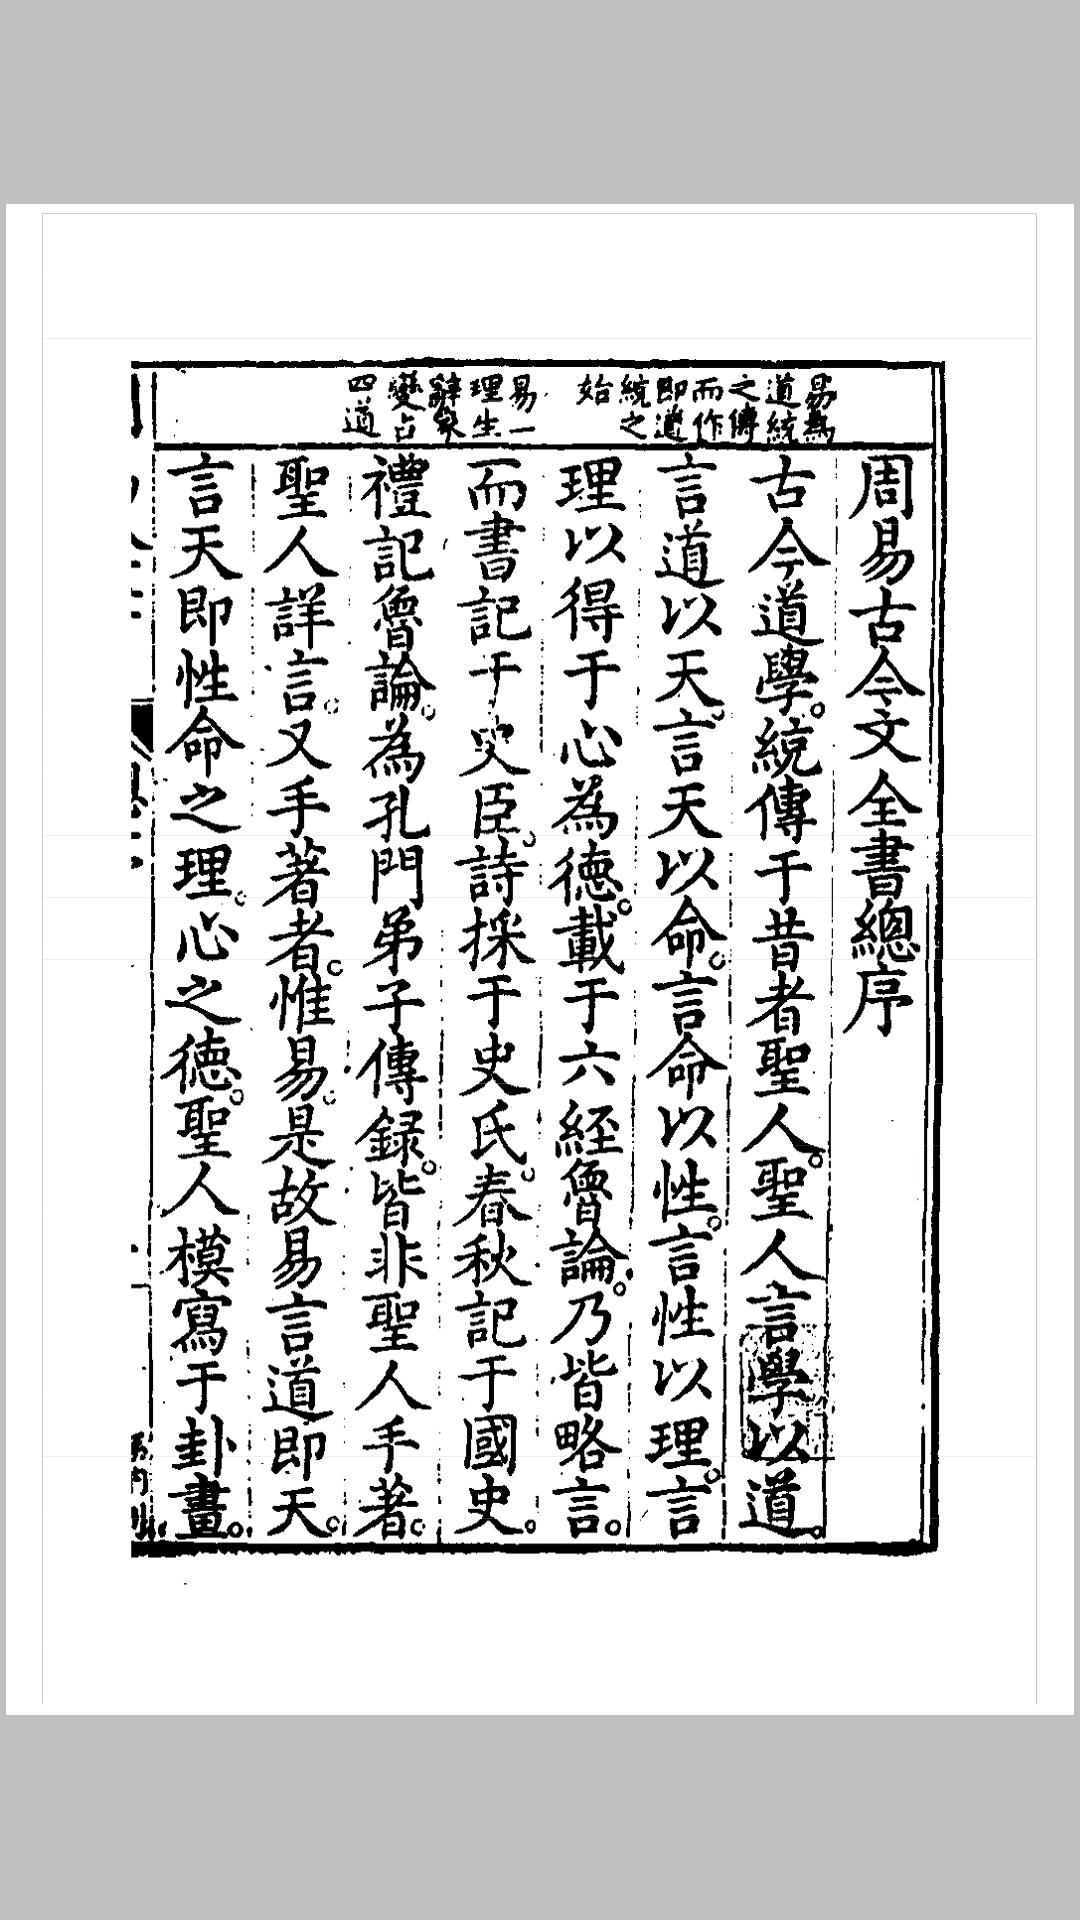 易為
道統
之傳
而作
即道
統之
始
易一
理生
辭象
變占
四道
周易古今文全書總序
古今道學。統傳于昔者聖人。聖人言學以道。
言道以天。言天以命。言命以性。言性以理。言
理以得于心為德。載于六經魯論。乃皆略言。
而書記于史臣。詩採于史氏。春秋記于國史。
禮記魯論。為孔門弟子傳録。皆非聖人手著。
聖人詳言。又手著者。惟易。是故易言道即天。
言天即性命之理。心之德。聖人模寫于卦畫。